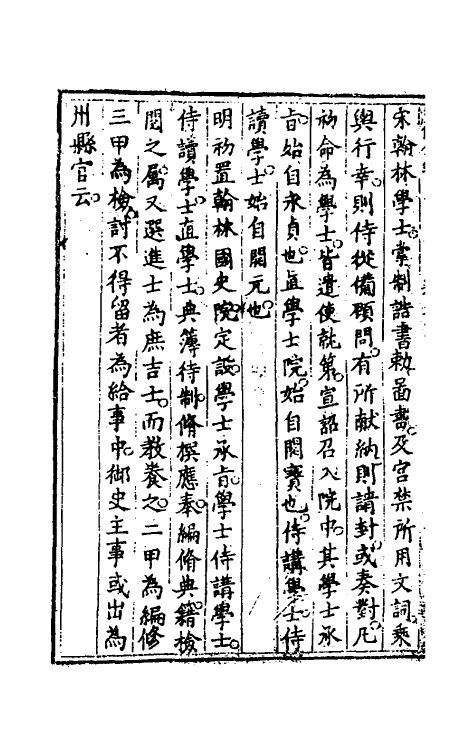 宋翰林學士掌制誥書勅啚書及宮禁所用文詞乘
輿行幸則侍從備顧問有所献納則請封或奏對凡
初命為學士皆遣使就第宣詔召入院中其學士承
旨始自永貞也直學士院始自開寶也侍講學士侍
讀學士始自開元也
明初置翰林國史院定設學士承旨學士侍講學士
侍讀學士直學士典簿待制脩撰應奉編脩典籍檢
閱之属又選進士為庶吉士而教養之二甲為編修
三甲為檢討不得留者為給事中御史主事或出為
州縣官云